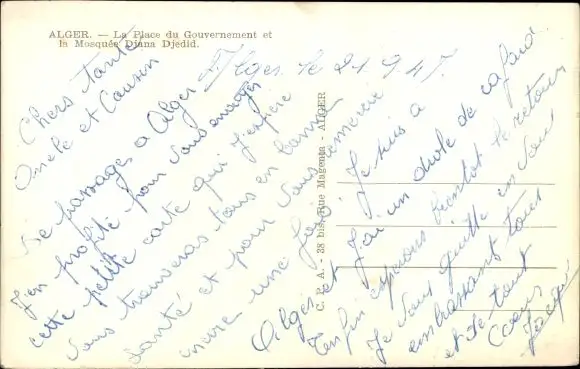 ALGER. — La Place du Gouvernement et
la Mosquée Djama Djedid.
Alger le 21.9.47.
Chers tante
Oncle et Cousin
De passage a Alger
J'en profite pour vous envoyer
cette petite carte qui j'espère
vous trouveras tous en bonne
santé et pour vous remercie
encore une fois. Je suis a
Alger et j'ai un drole de cafard
Enfin espérons bientot le retour
Je vous quitte en vous
embrassant tous
et de tout
Coeur
C. A. P. - 28 bis, Rue Magenta - ALGER